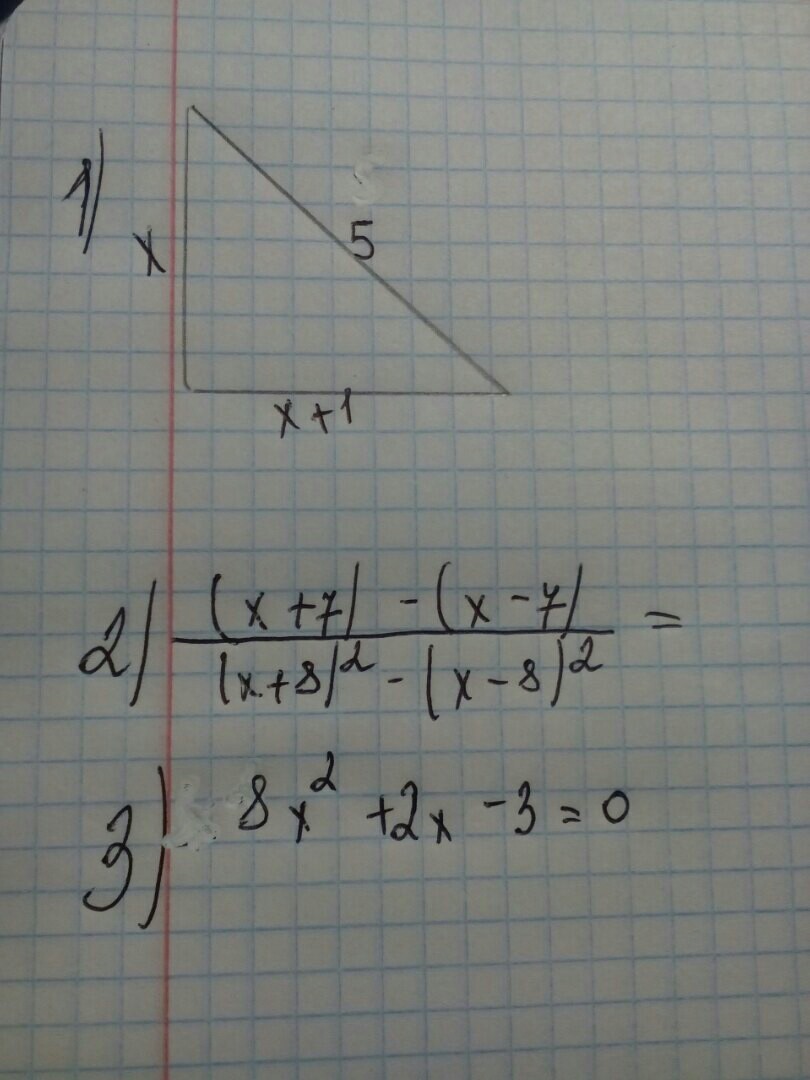 1)
x
5
x+1
2) (x+7)-(x-7)
(x+8)²-(x-8)² =
3) 8x²+2x-3=0